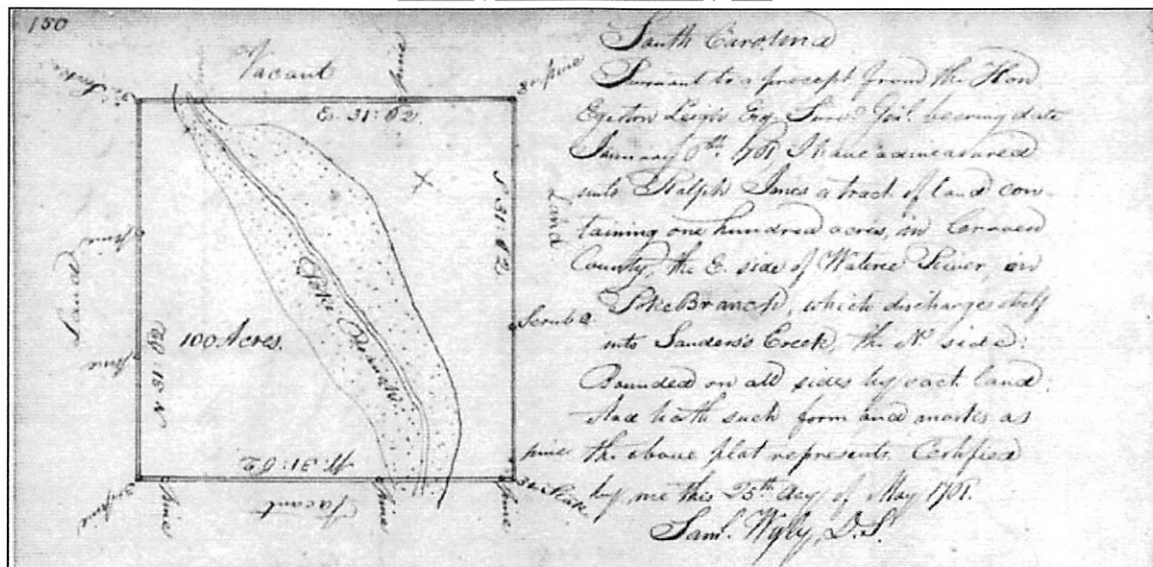 150
Vacant
pine
3x pine
E. 31:62
S 31:62
Land
Land
pine
pine
N 31 62
100 Acres.
Poke Branch
Scrub
pine
W. 31:62
Vacant
3x pine
Pine
Pine
Pine
South Carolina
Pursuant to a precept from the Hon
Egerton Leigh Esq. Survr. Genl. bearing date
January 6th. 1761 I have admeasured
unto Ralph Jones a tract of land con-
taining one hundred acres, in Craven
County, the E. side of Wateree River, on
Poke Branch, which discharges itself
into Sanders's Creek, the No. side:
Bounded on all sides by vact. land:
And hath such form and marks as
the above plat represents. Certified
by me this 25th day of May 1761.
Saml. Wyly, D.S.